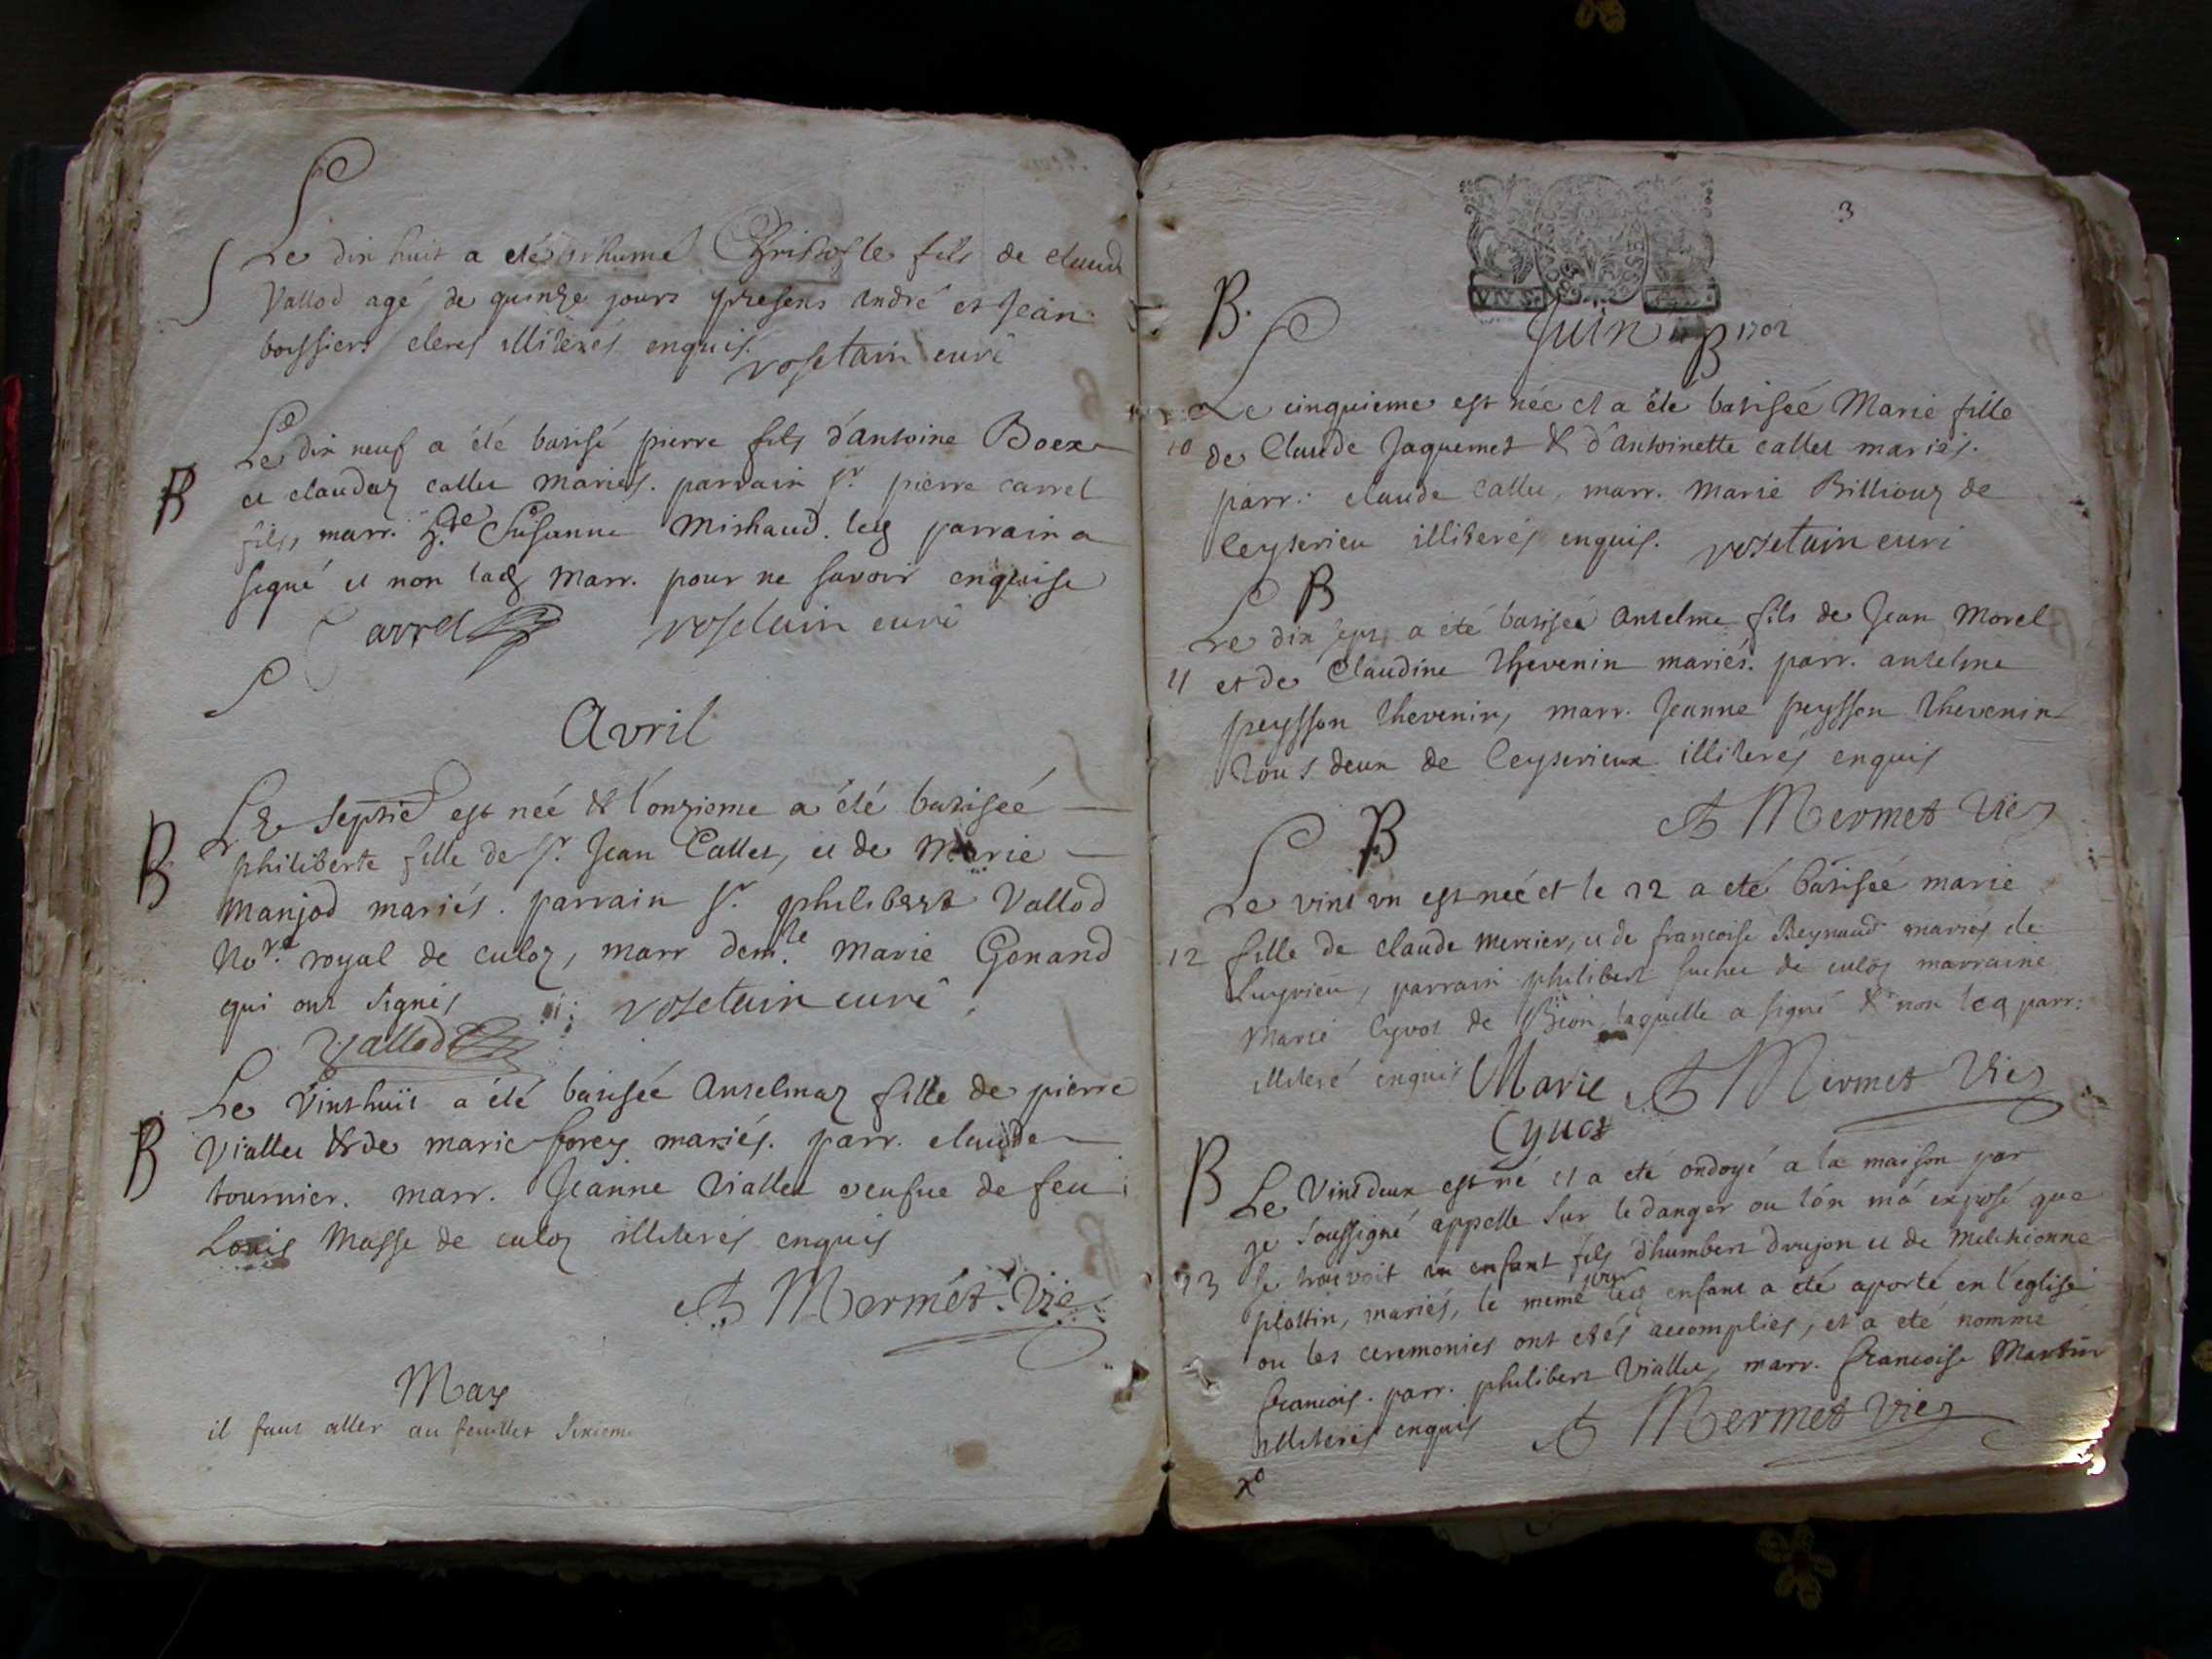 S Le dix huit a eté inhumé Christofle fils de claud
Vallod agé de quinze jours presens André et Jean
boissiers clercs illiterés enquis.
rosetain curé
Le dix neuf a été batisé pierre fils d'antoine Boex
B et claudaz callet mariés. parrain sr. pierre carrel
fils, marr. Susanne Mishaud. leq parrain a
signé et non laq marr. pour ne savoir enquise
Carrel rosetain curé
Avril
Le septie est née & l'onzieme a été batiseé
B philiberte fille de sr. Jean Callet, et de Marie
Manjod mariés. parrain sr. philibert Vallod
Nore. royal de culoz, marr demlle. Marie Gonand
qui ont signés rosetain curé
Vallod
Le Vinthuit a été batisée Anselmaz fille de pierre
B Viallet & de marie forey mariés. parr. claude
tournier. marr. Jeanne Viallet veufue de feu
Louis Masse de culoz illiterés enquis
Mermét. Vic
May
il faut aller au feuillet sixieme
3
VIN S.
B.
Juin B 1702
Le cinquieme est née et a été batisée Marie fille
10 de Claude Jaquemet & d'antoinette callet mariés.
parr: claude callet, marr. Marie Billiouz de
Ceyserieu illiterés enquis. rosetain curé
B
Le dix sept, a eté batisée Antelme fils de Jean Morel
11 et de Claudine thevenin mariés. parr. antelme
peysson thevenin, marr. Jeanne peysson thevenin
tous deux de Ceyserieux illiterés enquis
Mermet Vic
B
Le vint un est neé et le 22 a eté batisée marie
12 fille de claude mercier, et de francoise Beynaud mariés de
Luyrieu, parrain philibert suchet de culoz marraine
Marie Cyvot de Béon, laquelle a signé & non leq parr:
illiteré enquis Marie Mermet Vic
Cyuot
B Le Vintdeux est né et a eté ondoyé a la maison par
je soussigné appelle sur le danger ou l'on m'a exposé que
13 se trouvoit un enfant fils d'humbert drujon et de Melchionne
plottin, mariés, le meme jour leq enfant a eté aporté en l'eglise
ou les ceremonies ont etés accomplies, et a eté nommé
francois. parr. philibert Viallet, marr. francoise Martin
illiterés enquis Mermet Vic